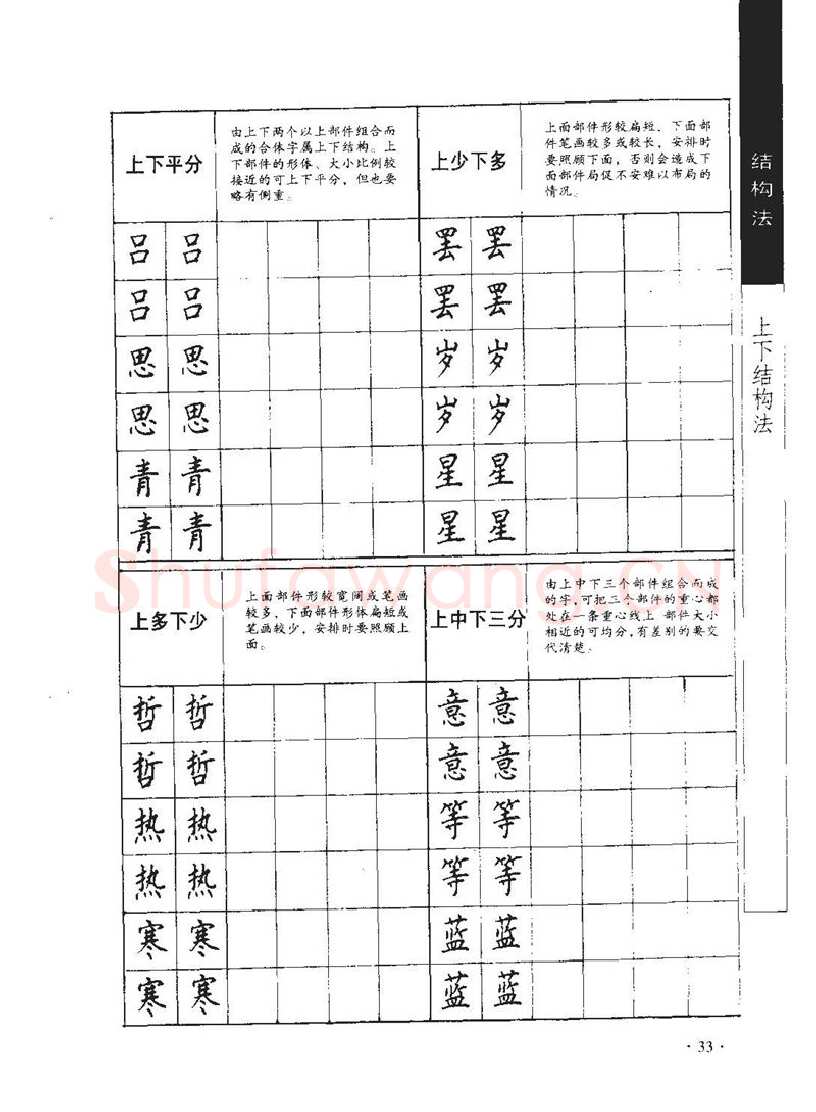 结构法
上下结构法
上下平分
由上下两个以上部件组合而
成的合体字属上下结构。上
下部件的形体、大小比例较
接近的可上下平分，但也要
略有侧重。
吕 吕
吕 吕
思 思
思 思
青 青
青 青
上少下多
上面部件形较扁短，下面部
件笔画较多或较长，安排时
要照顾下面，否则会造成下
面部件局促不安难以布局的
情况。
罢 罢
罢 罢
岁 岁
岁 岁
星 星
星 星
上多下少
上面部件形较宽阔或笔画
较多，下面部件形体扁短或
笔画较少，安排时要照顾上
面。
哲 哲
哲 哲
热 热
热 热
寒 寒
寒 寒
上中下三分
由上中下三个部件组合而成
的字，可把三个部件的重心都
处在一条重心线上 部件大小
相近的可均分，有差别的要交
代清楚。
意 意
意 意
等 等
等 等
蓝 蓝
蓝 蓝
Shufawang.CN
·33·